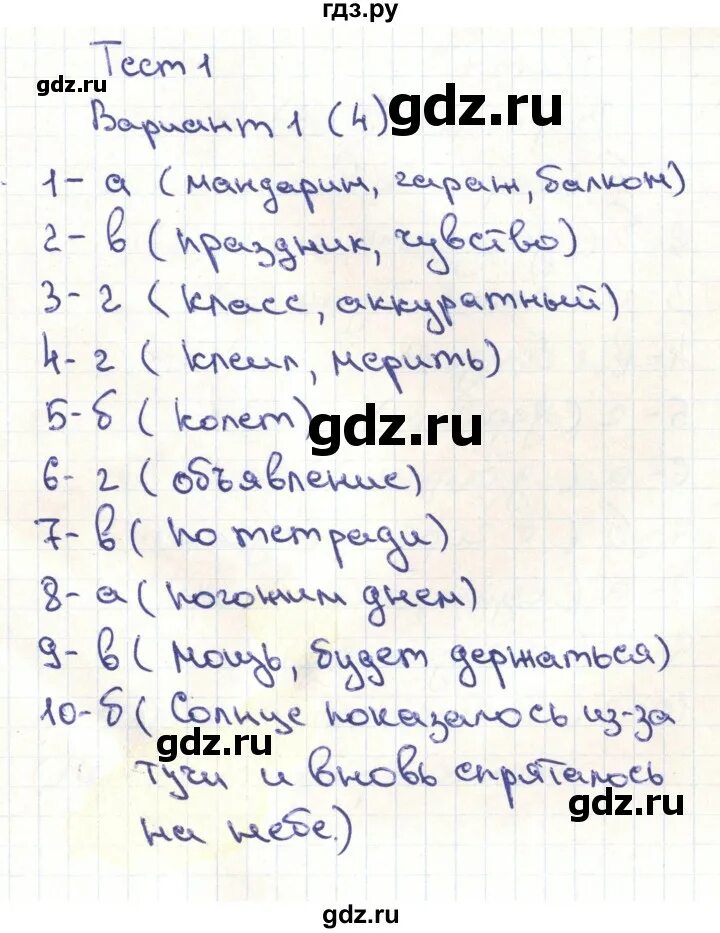 гдз.ру
Тест 1
gdz.ru
gdz.ru
Вариант 1 (4)
1- а (мандарин, гараж, балкон)
2- в (праздник, чувство)
3- г (класс, аккуратный)
4- г (клеил, мерить)
5- б (колет)
gdz.ru
6- г (объявление)
7- в (по тетради)
8- а (погожим днем)
9- в (мощь, будет держаться)
10- б (Солнце показалось из-за
gdz.ru
тучи и вновь спряталось
gdz.ru
на небе.)
gdz.ru